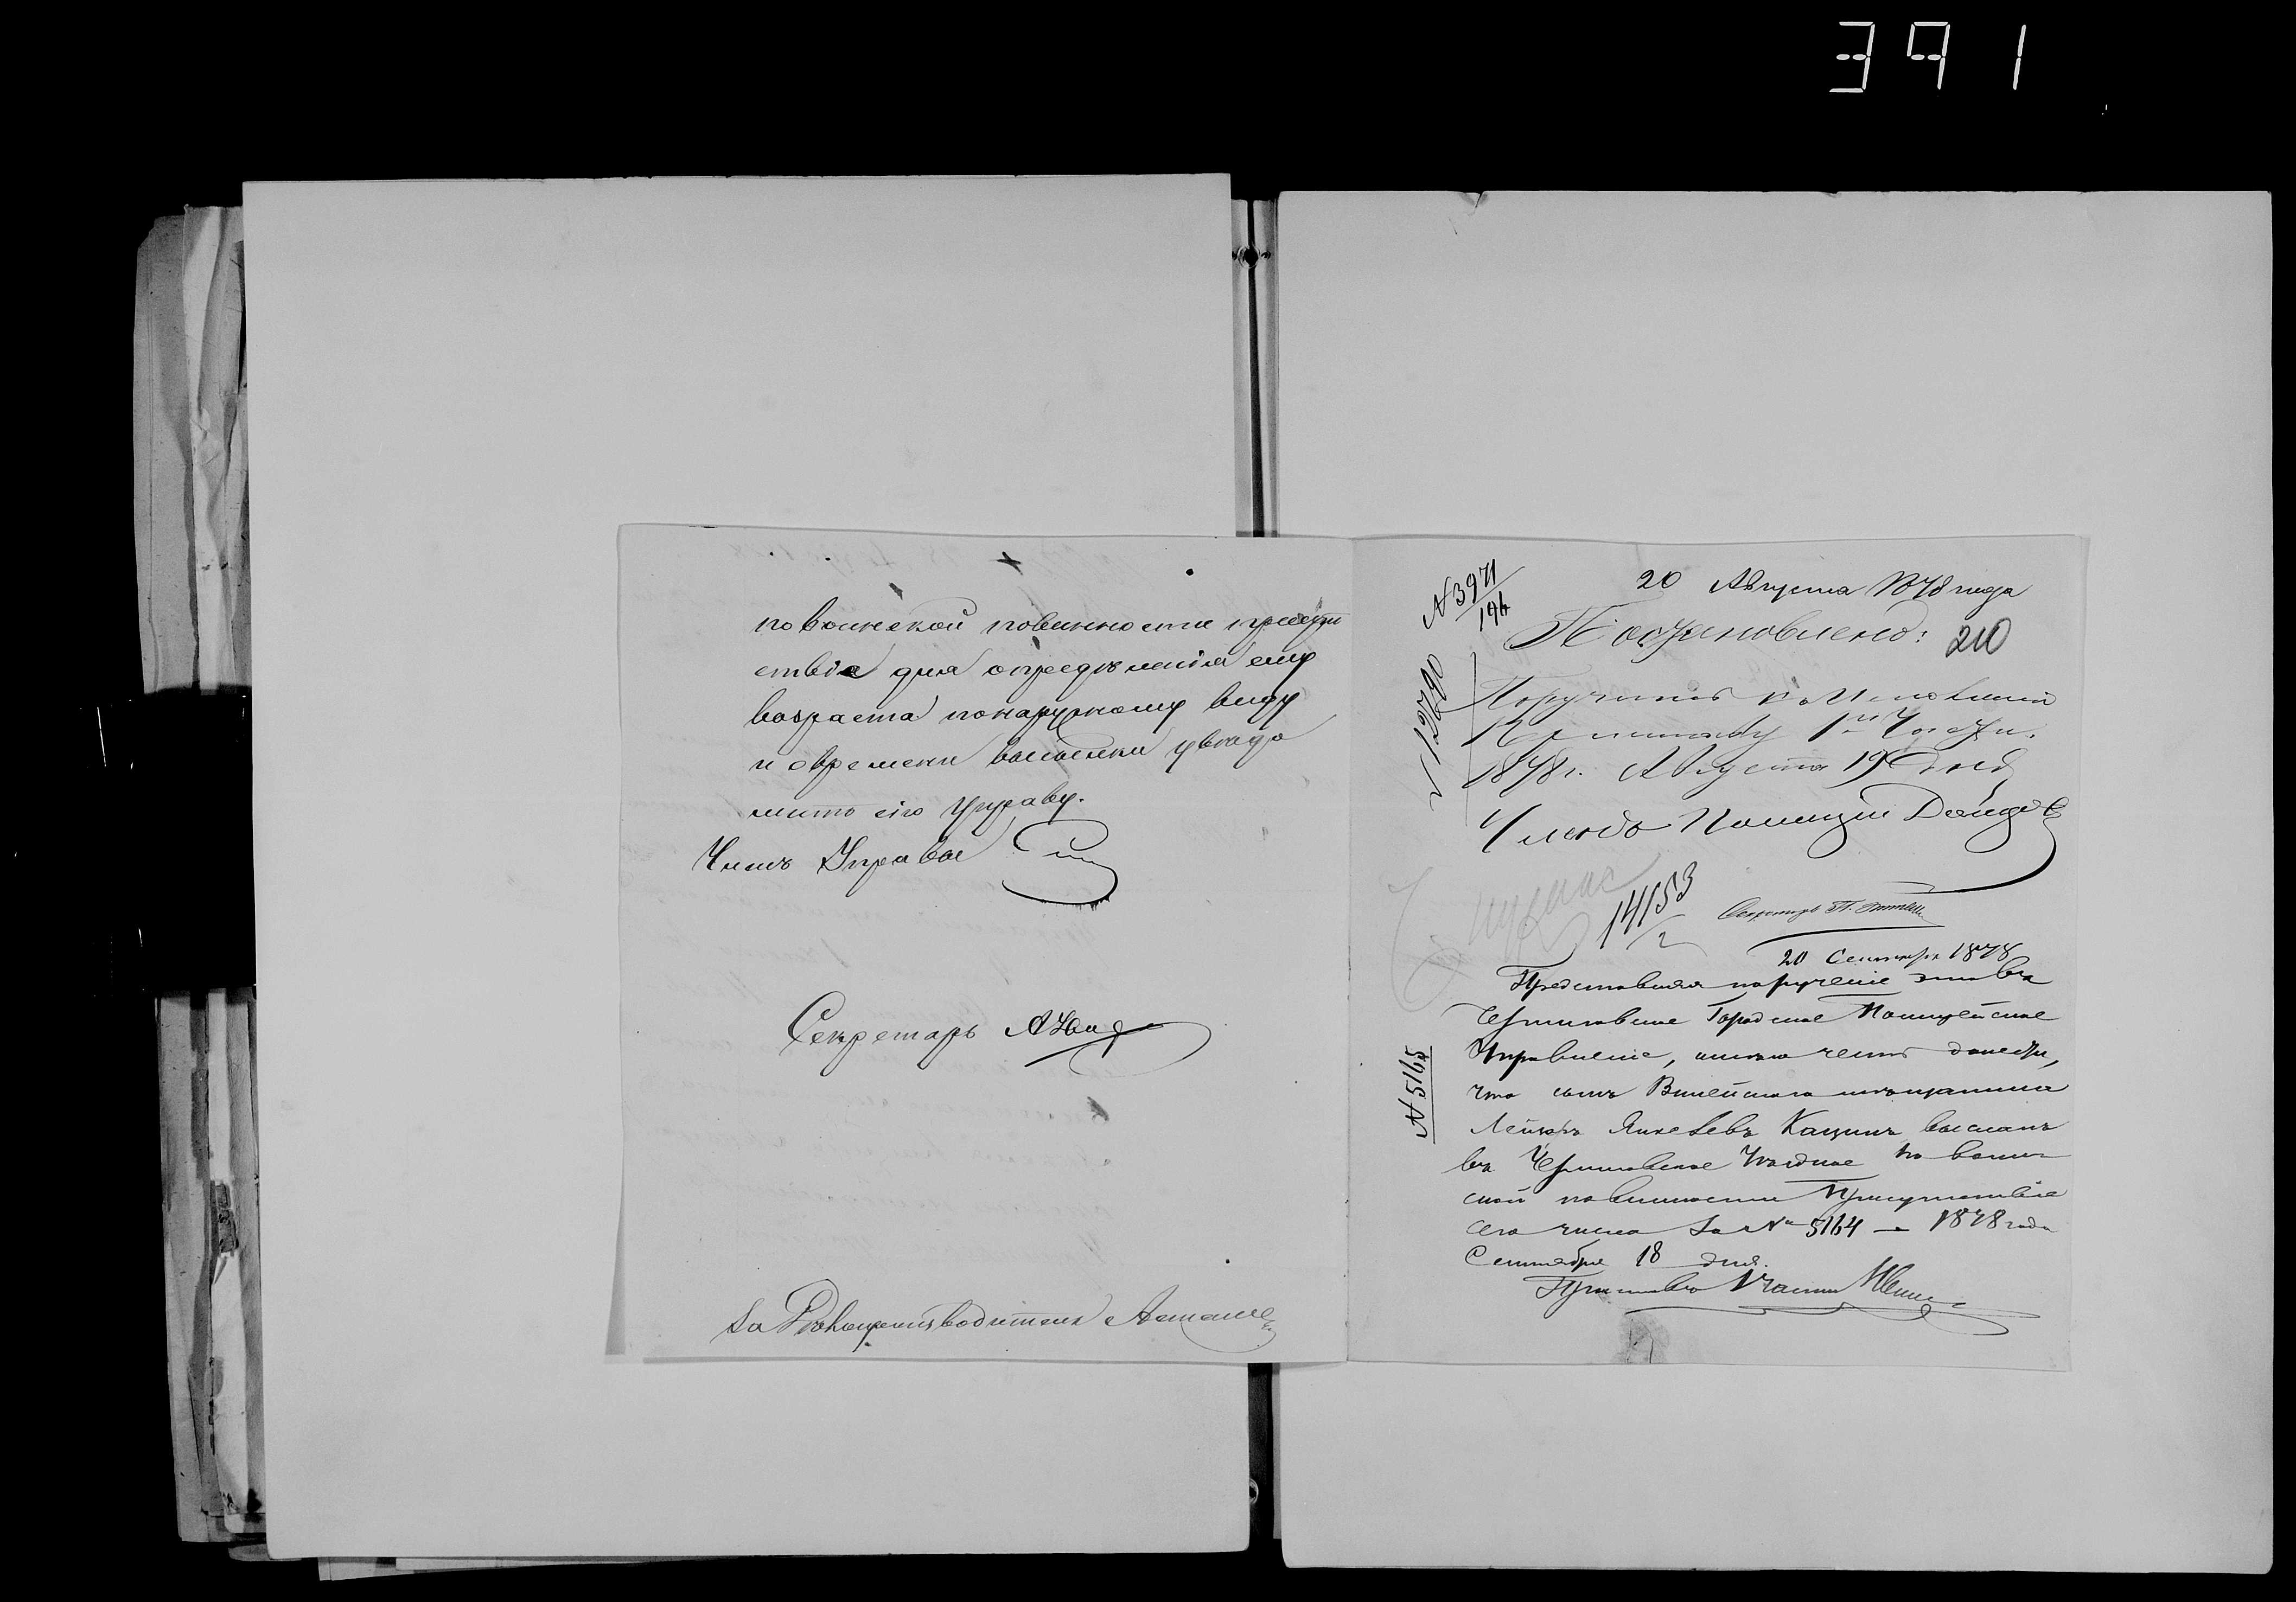 391
по воинской повинности присут
ствіе для определенія ему
возраста по наружному виду
и о времени высылки уведо
мить сію Управу.
Членъ Управы
Секретарь
За Делопроизводителя
№ 3971/196
20 Августа 1878 года
Постановлено: 210
№ 12790
Поручить къ исполненію
Приставу 1й Части.
1878 г. Августа 19 дня
Членъ Полиціи
14153/2
Секретарь П.
20 Сентября 1878
Представляя порученіе это въ
Черниговское Городское Полицейское
Управленіе, имею честь донести,
№ 5165
что сынъ мещанина
Лейзеръ Янкелевъ Кацинъ высланъ
въ Черниговское Уездное по воин
ской повинности Присутствіе
сего числа за № 5164 — 1878 года
Сентября 18 дня.
Приставъ 1 Части